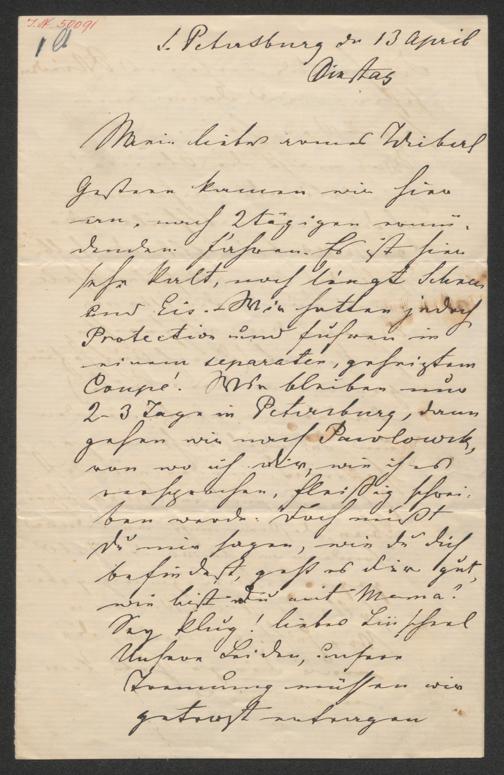 I.N. 50091
S. Petersburg den 13 April
Dienstag
Mein liebes armes Weiberl
Gestern kamen wir hier
an, nach 2tägigen ermü-
denden Fahren. Es ist hier
sehr kalt, noch liegt Schnee
und Eis. – Wir hatten jedoch
Protection und fuhren in
einem separaten, geheizten
Coupé. Wir bleiben nur
2-3 Tage in Petersburg, dann
gehen wir nach Pawlowsk,
von wo ich dir, wie ich es
versprochen, fleißig schrei-
ben werde. Doch mußt
Du mir sagen, wie du dich
befindest, geht es dir gut,
wie bist du mit Mama?
Sey klug! liebes
Unsere Leiden, unsere
Trennung müssen wir
getrost ertragen